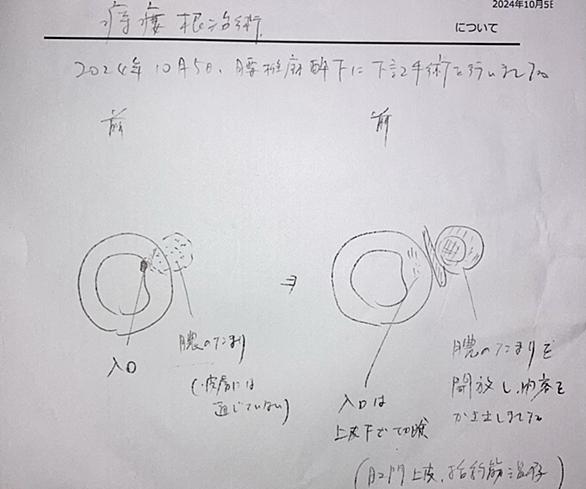 2024年10月5日
痔瘻根治術
について
2024年10月5日、腰椎麻酔下に下記手術を行いました
前
前
⇒
入口
膿のたまり
(皮膚には
通じていない)
入口は
上皮下で切除
膿のたまりを
開放し、内容を
かき出しました
(肛門上皮、括約筋温存)